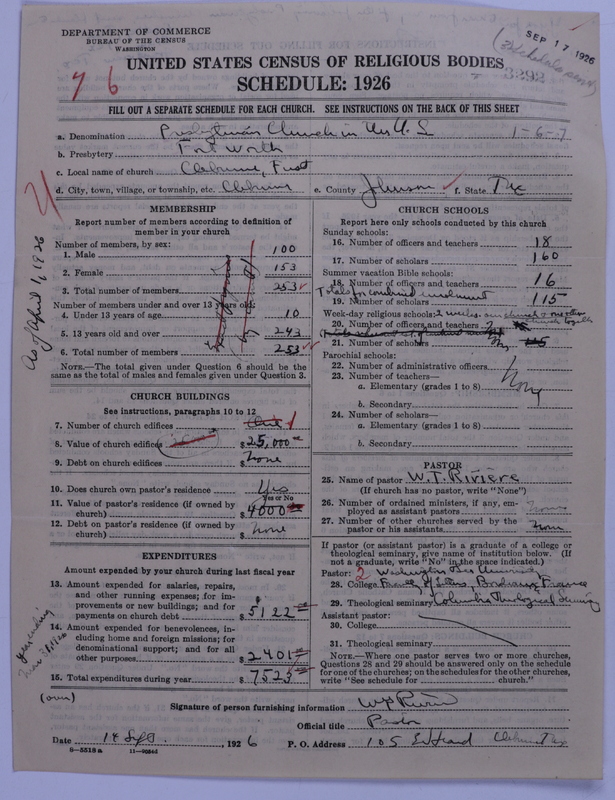 DEPARTMENT OF COMMERCE
BUREAU OF THE CENSUS
WASHINGTON
SEP 17 1926
3292
76
UNITED STATES CENSUS OF RELIGIOUS BODIES
SCHEDULE: 1926
FILL OUT A SEPARATE SCHEDULE FOR EACH CHURCH. SEE INSTRUCTIONS ON THE BACK OF THIS SHEET
a. Denomination Presbyterian Church in the U.S. 1-6-7
b. Presbytery Fort Worth
c. Local name of church Cleburne, First
d. City, town, village, or township, etc. Cleburne e. County Johnson f. State Tex
As of April 1, 1926
MEMBERSHIP
Report number of members according to definition of
member in your church
Number of members, by sex:
1. Male 100
2. Female 153
3. Total number of members 253
Number of members under and over 13 years old:
4. Under 13 years of age 10
5. 13 years old and over 243
6. Total number of members 253
NOTE.—The total given under Question 6 should be the
same as the total of males and females given under Question 3.
CHURCH BUILDINGS
See instructions, paragraphs 10 to 12
7. Number of church edifices 1
8. Value of church edifices $25,000
9. Debt on church edifices $None
10. Does church own pastor's residence Yes
Yes or No
11. Value of pastor's residence (if owned by
church) $4000
12. Debt on pastor's residence (if owned by
church) $None
EXPENDITURES
Amount expended by your church during last fiscal year
13. Amount expended for salaries, repairs,
and other running expenses; for im-
provements or new buildings; and for
payments on church debt $5122
14. Amount expended for benevolences, in-
cluding home and foreign missions; for
denominational support; and for all
other purposes $2401
15. Total expenditures during year $7523
(over)
CHURCH SCHOOLS
Report here only schools conducted by this church
Sunday schools:
16. Number of officers and teachers 18
17. Number of scholars 160
Summer vacation Bible schools:
18. Number of officers and teachers 16
Totals for combined enrollment
19. Number of scholars 115
Week-day religious schools: 2 weeks. our church & one other
together
20. Number of officers and teachers
21. Number of scholars
Parochial schools:
22. Number of administrative officers
23. Number of teachers—
a. Elementary (grades 1 to 8) None
b. Secondary
24. Number of scholars—
a. Elementary (grades 1 to 8)
b. Secondary
PASTOR
25. Name of pastor W. T. Riviere
(If church has no pastor, write "None")
26. Number of ordained ministers, if any, em-
ployed as assistant pastors None
27. Number of other churches served by the
pastor or his assistants None
If pastor (or assistant pastor) is a graduate of a college or
theological seminary, give name of institution below. (If
not a graduate, write "No" in the space indicated.)
Pastor: 2 Washington & Lee University
28. College Faculty of Letters, Bordeaux, France
29. Theological seminary Columbia Theological Seminary
Assistant pastor:
30. College
31. Theological seminary
NOTE.—Where one pastor serves two or more churches,
Questions 28 and 29 should be answered only on the schedule
for one of the churches; on the schedules for the other churches,
write "See schedule for church."
Signature of person furnishing information W T Riviere
Official title Pastor
Date 14 Sept, 1926 P. O. Address 105 Cleburne Tex
8-5518a 11-9034d